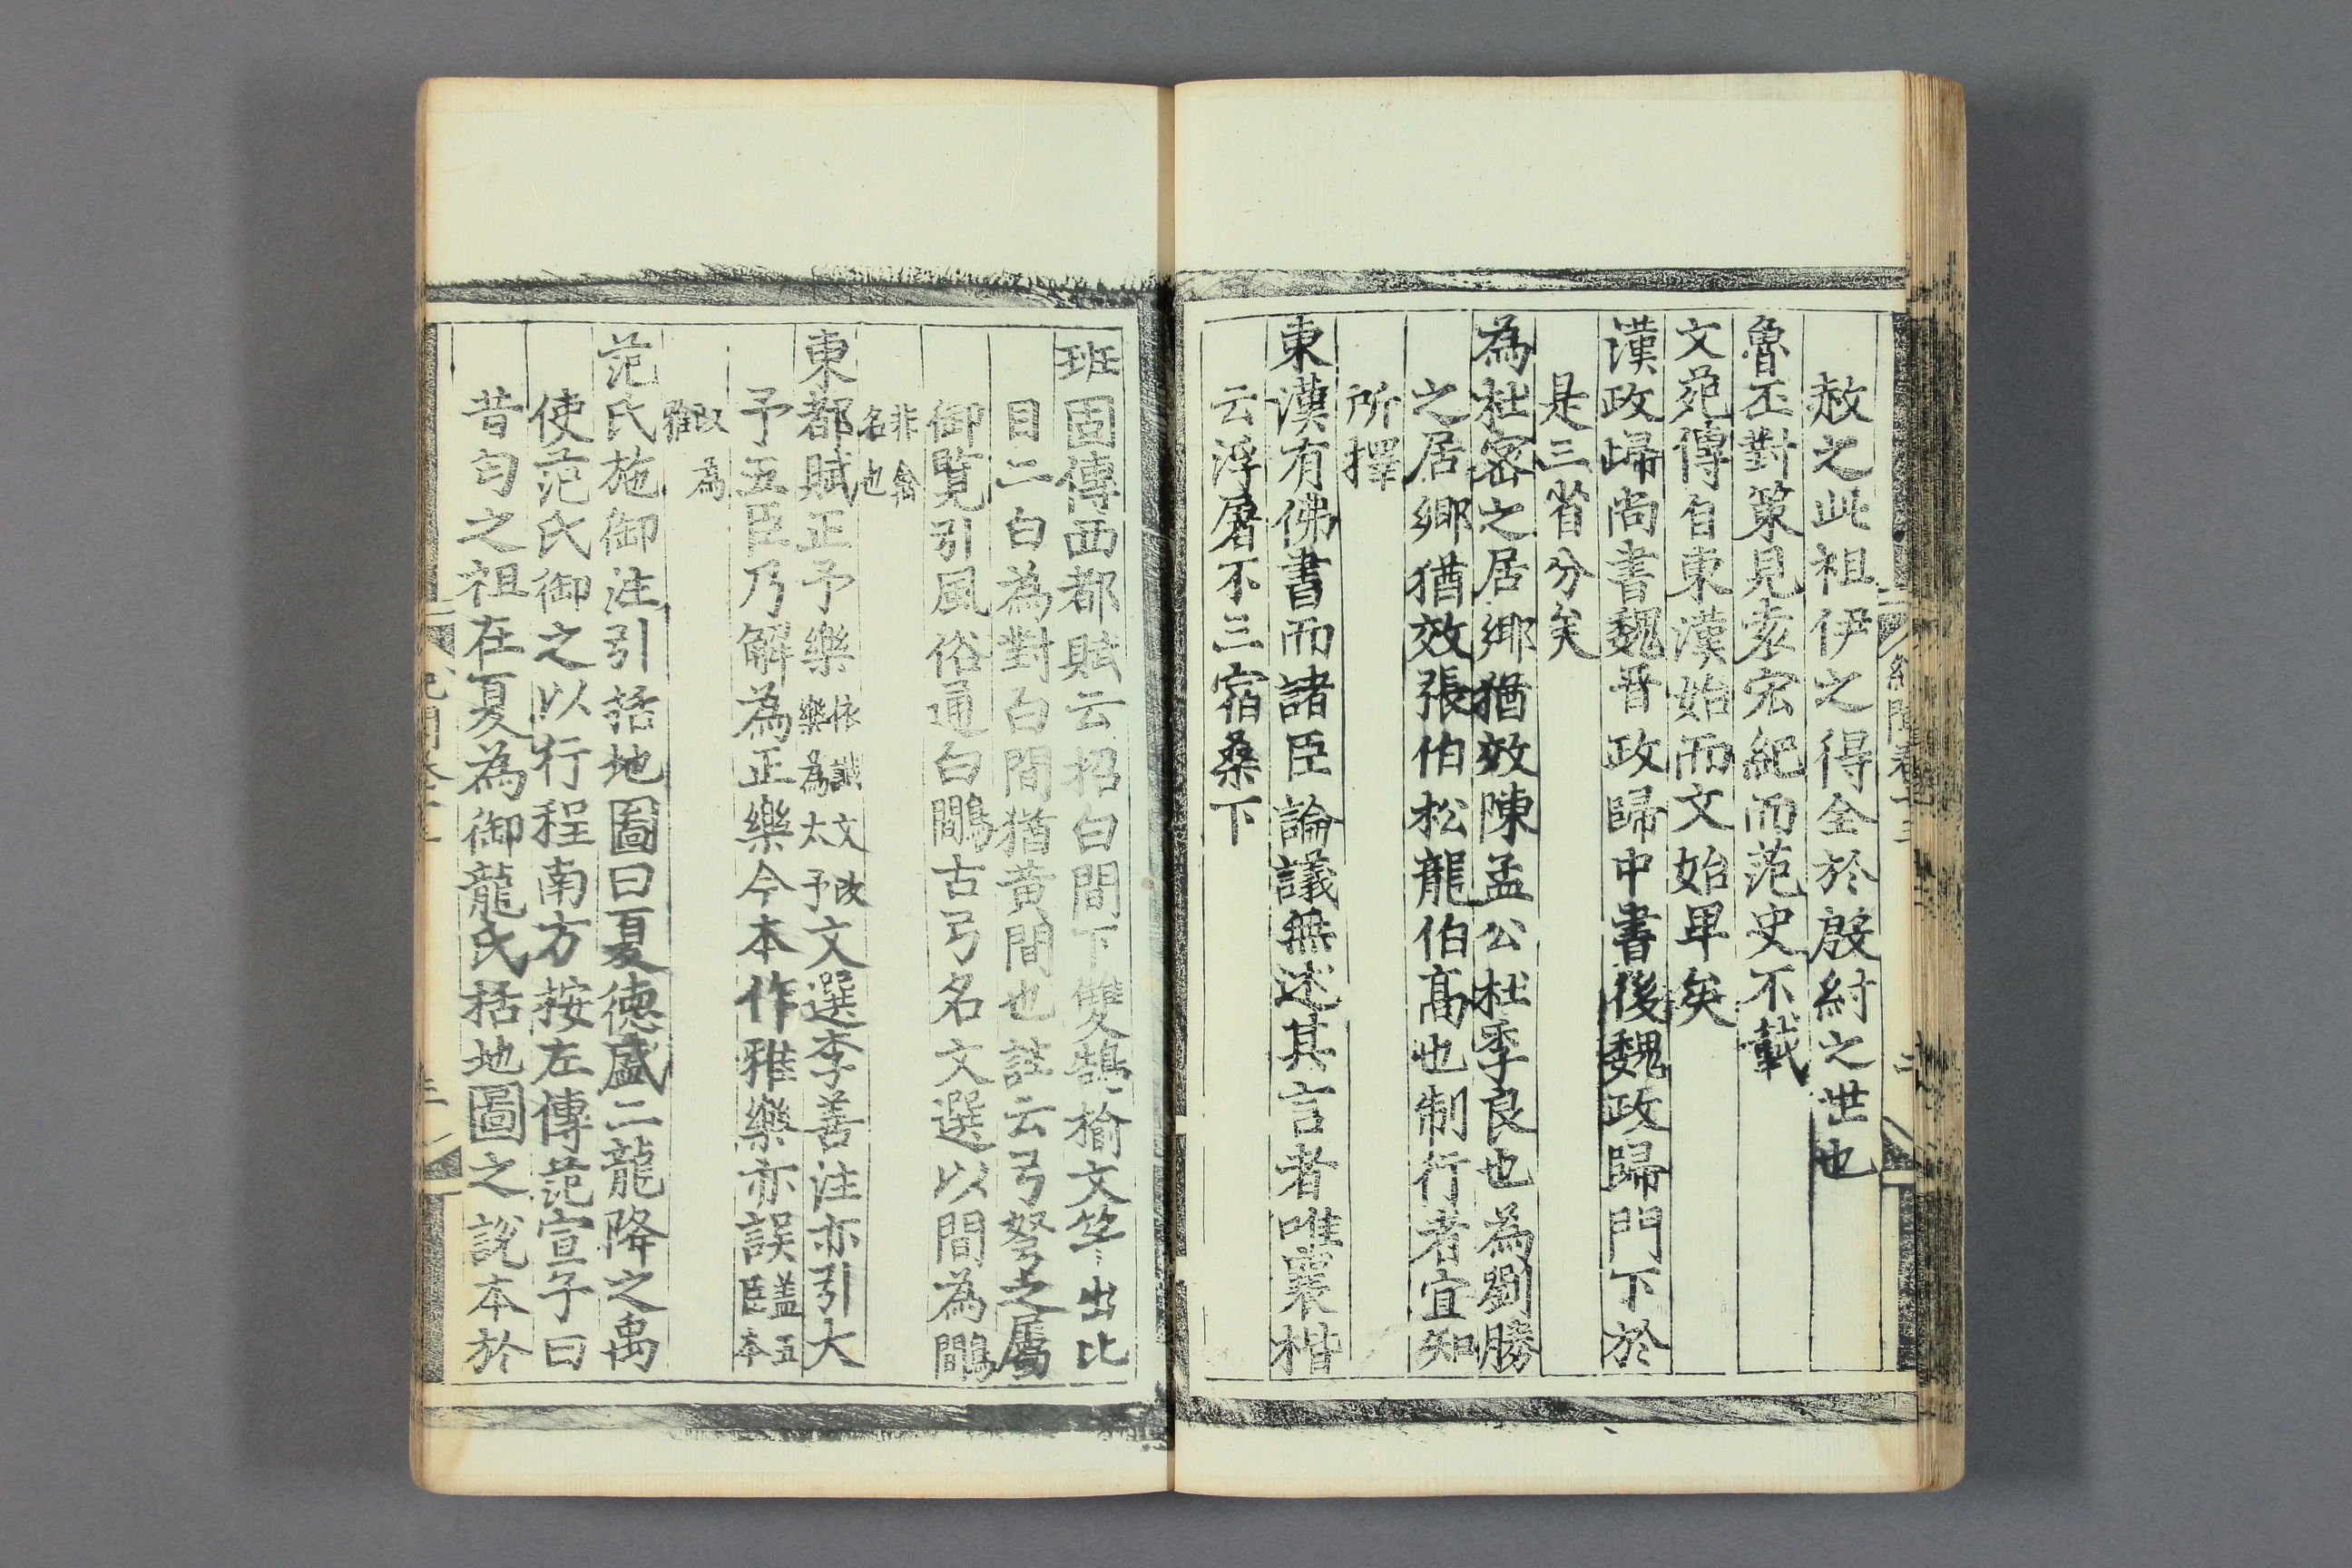 赦之此祖伊之得全於殷紂之世也
魯丕對策見袁宏紀而范史不載
文苑傳自東漢始而文始卑矣
漢政歸尚書魏晉政歸中書後魏政歸門下於
是三省分矣
為杜密之居鄉猶效陳孟公杜季良也為劉勝
之居鄉猶效張伯松龍伯髙也制行者宜知
所擇
東漢有佛書而諸臣論議無述其言者唯襄楷
云浮屠不三宿桑下
班固傳西都賦云招白間下雙鵠揄文竿出比
目二白為對白間猶黃間也註云弓弩之屬
御覽引風俗通白鷼古弓名文選以間為鷼
非禽
名也
東都賦正予樂
依讖文改
樂為太予
文選李善注亦引大
予五臣乃解為正樂今本作雅樂亦誤
盖五
臣本
改為
雅
范氏施御注引括地圖曰夏德盛二龍降之禹
使范氏御之以行程南方按左傳范宣子曰
昔匄之祖在夏為御龍氏括地圖之説本於